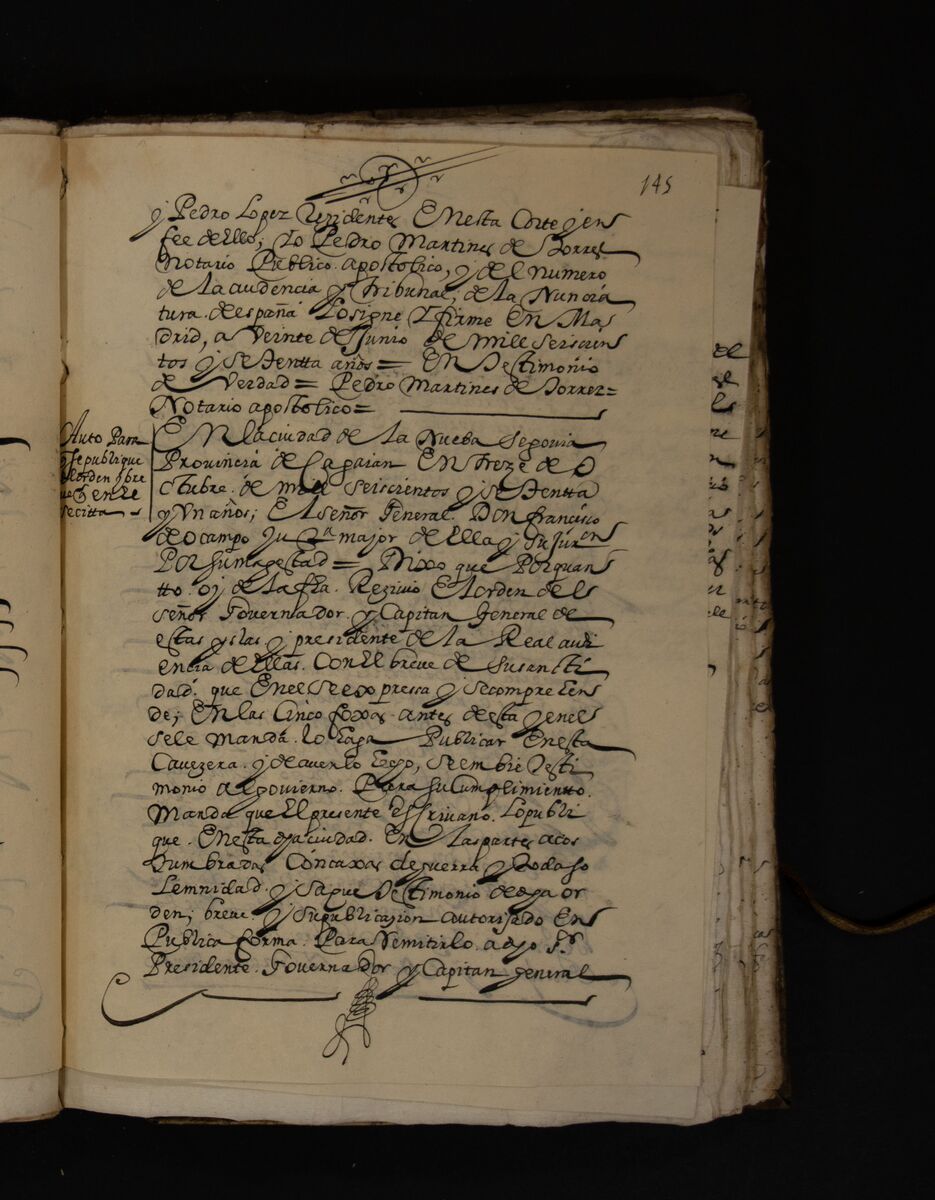 145
y Pedro Lopez Rezidentes En esta Corte y en
fee de Ello; Yo Pedro Martines de Torres
Notario Publico apostolico, y del numero
de la audencia y Tribunal, de la Nuncia
tura de españa Lo signe y firme En Ma
drid, a Veinte de Junio de mill seiscien
tos y setentta años = En Testimonio
de Verdad = Pedro Martines de Torrez =
Notario apostolico =
Auto Para
q se publique
el orden y bre
ue q en el
se citta
En la ciudad de la Nueba Segovia
Provincia de Cagaian En treze de O
ctubre de mill seiscientos y setentta
y Un años; El señor General Don francisco
de ocampo Ju.ª major de Ella y su Jur.on
Por su magestad = Dixo que Por quan
tto oy de la fha. Rezivio El orden del
señor Governador y Capitan General de
estas yslas y presidente de la Real audi
encia de Ellas. Con El breve de su santi
dad que En el se expressa y se comprehen
de; En las Cinco foxas antes de esta y en el
se le manda lo haga Publicar En esta
Cavezera y de averlo hecho, se embie Testi
monio al govierno. Para su Cumplimientto
Manda que El presente Escrivano Lo publi
que En esta dha ciudad En las partes acos
tumbradas Con caxas de guerra y toda so
lemnidad y saque Testimonio de dha or
den; breve y su publicasion autorisado En
Publica forma Para Remitirlo a dho s.r
Presidente Governador y Capitan general